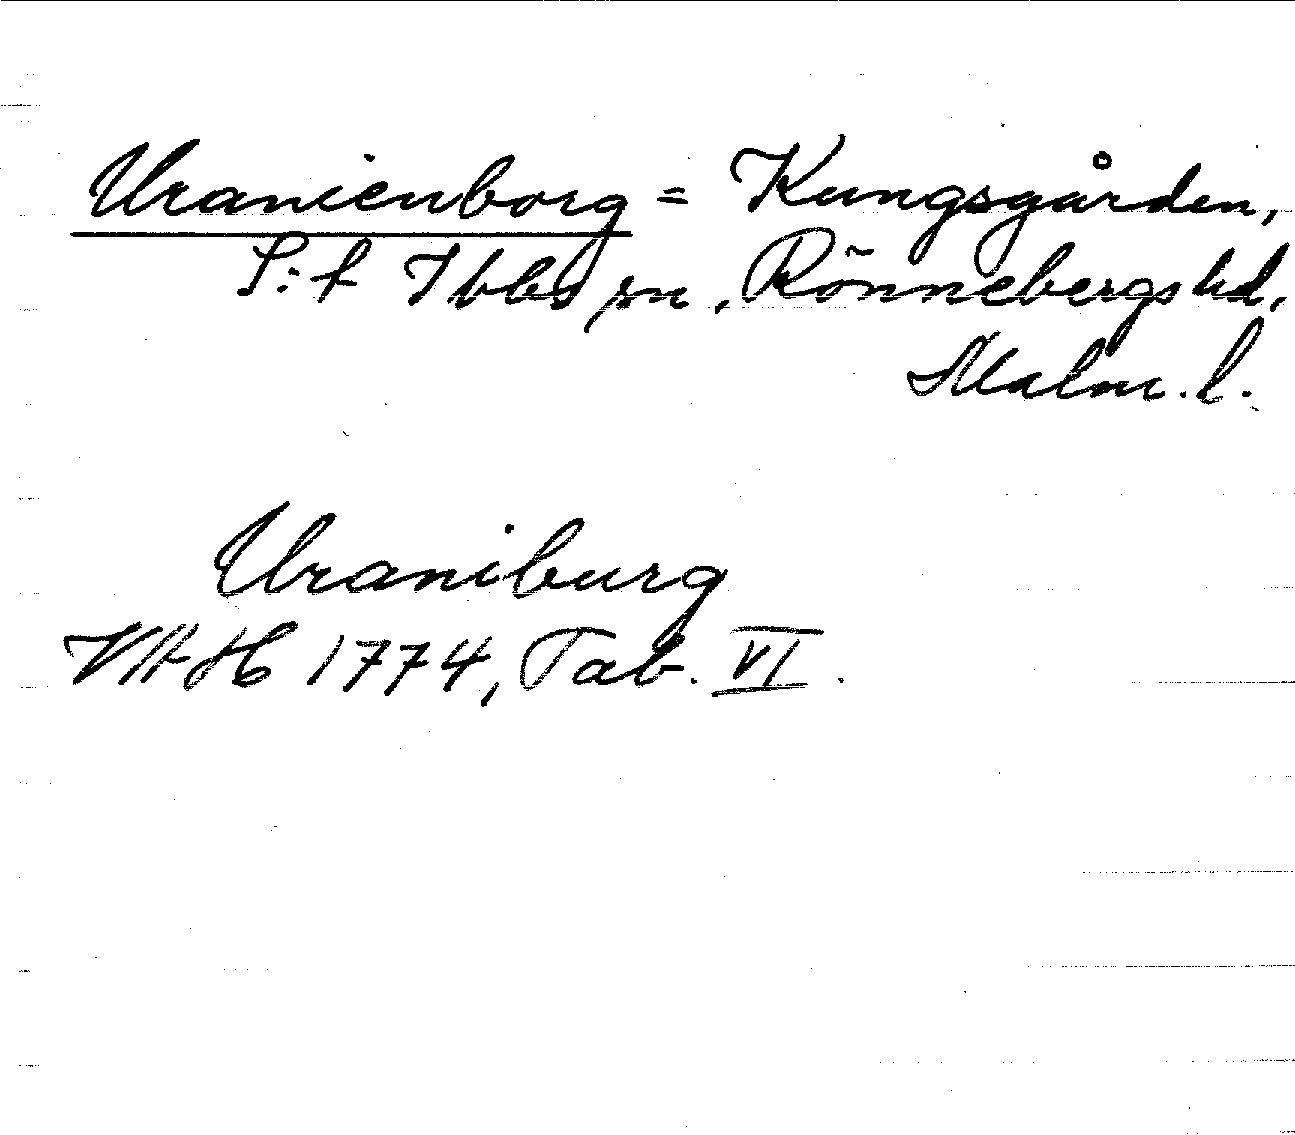 Uranienborg = Kungsgården,
S:t Ibbs sn, Rönnebergs hd,
Malm. l.
Uraniburg
VAH 1774, Tab. VI.